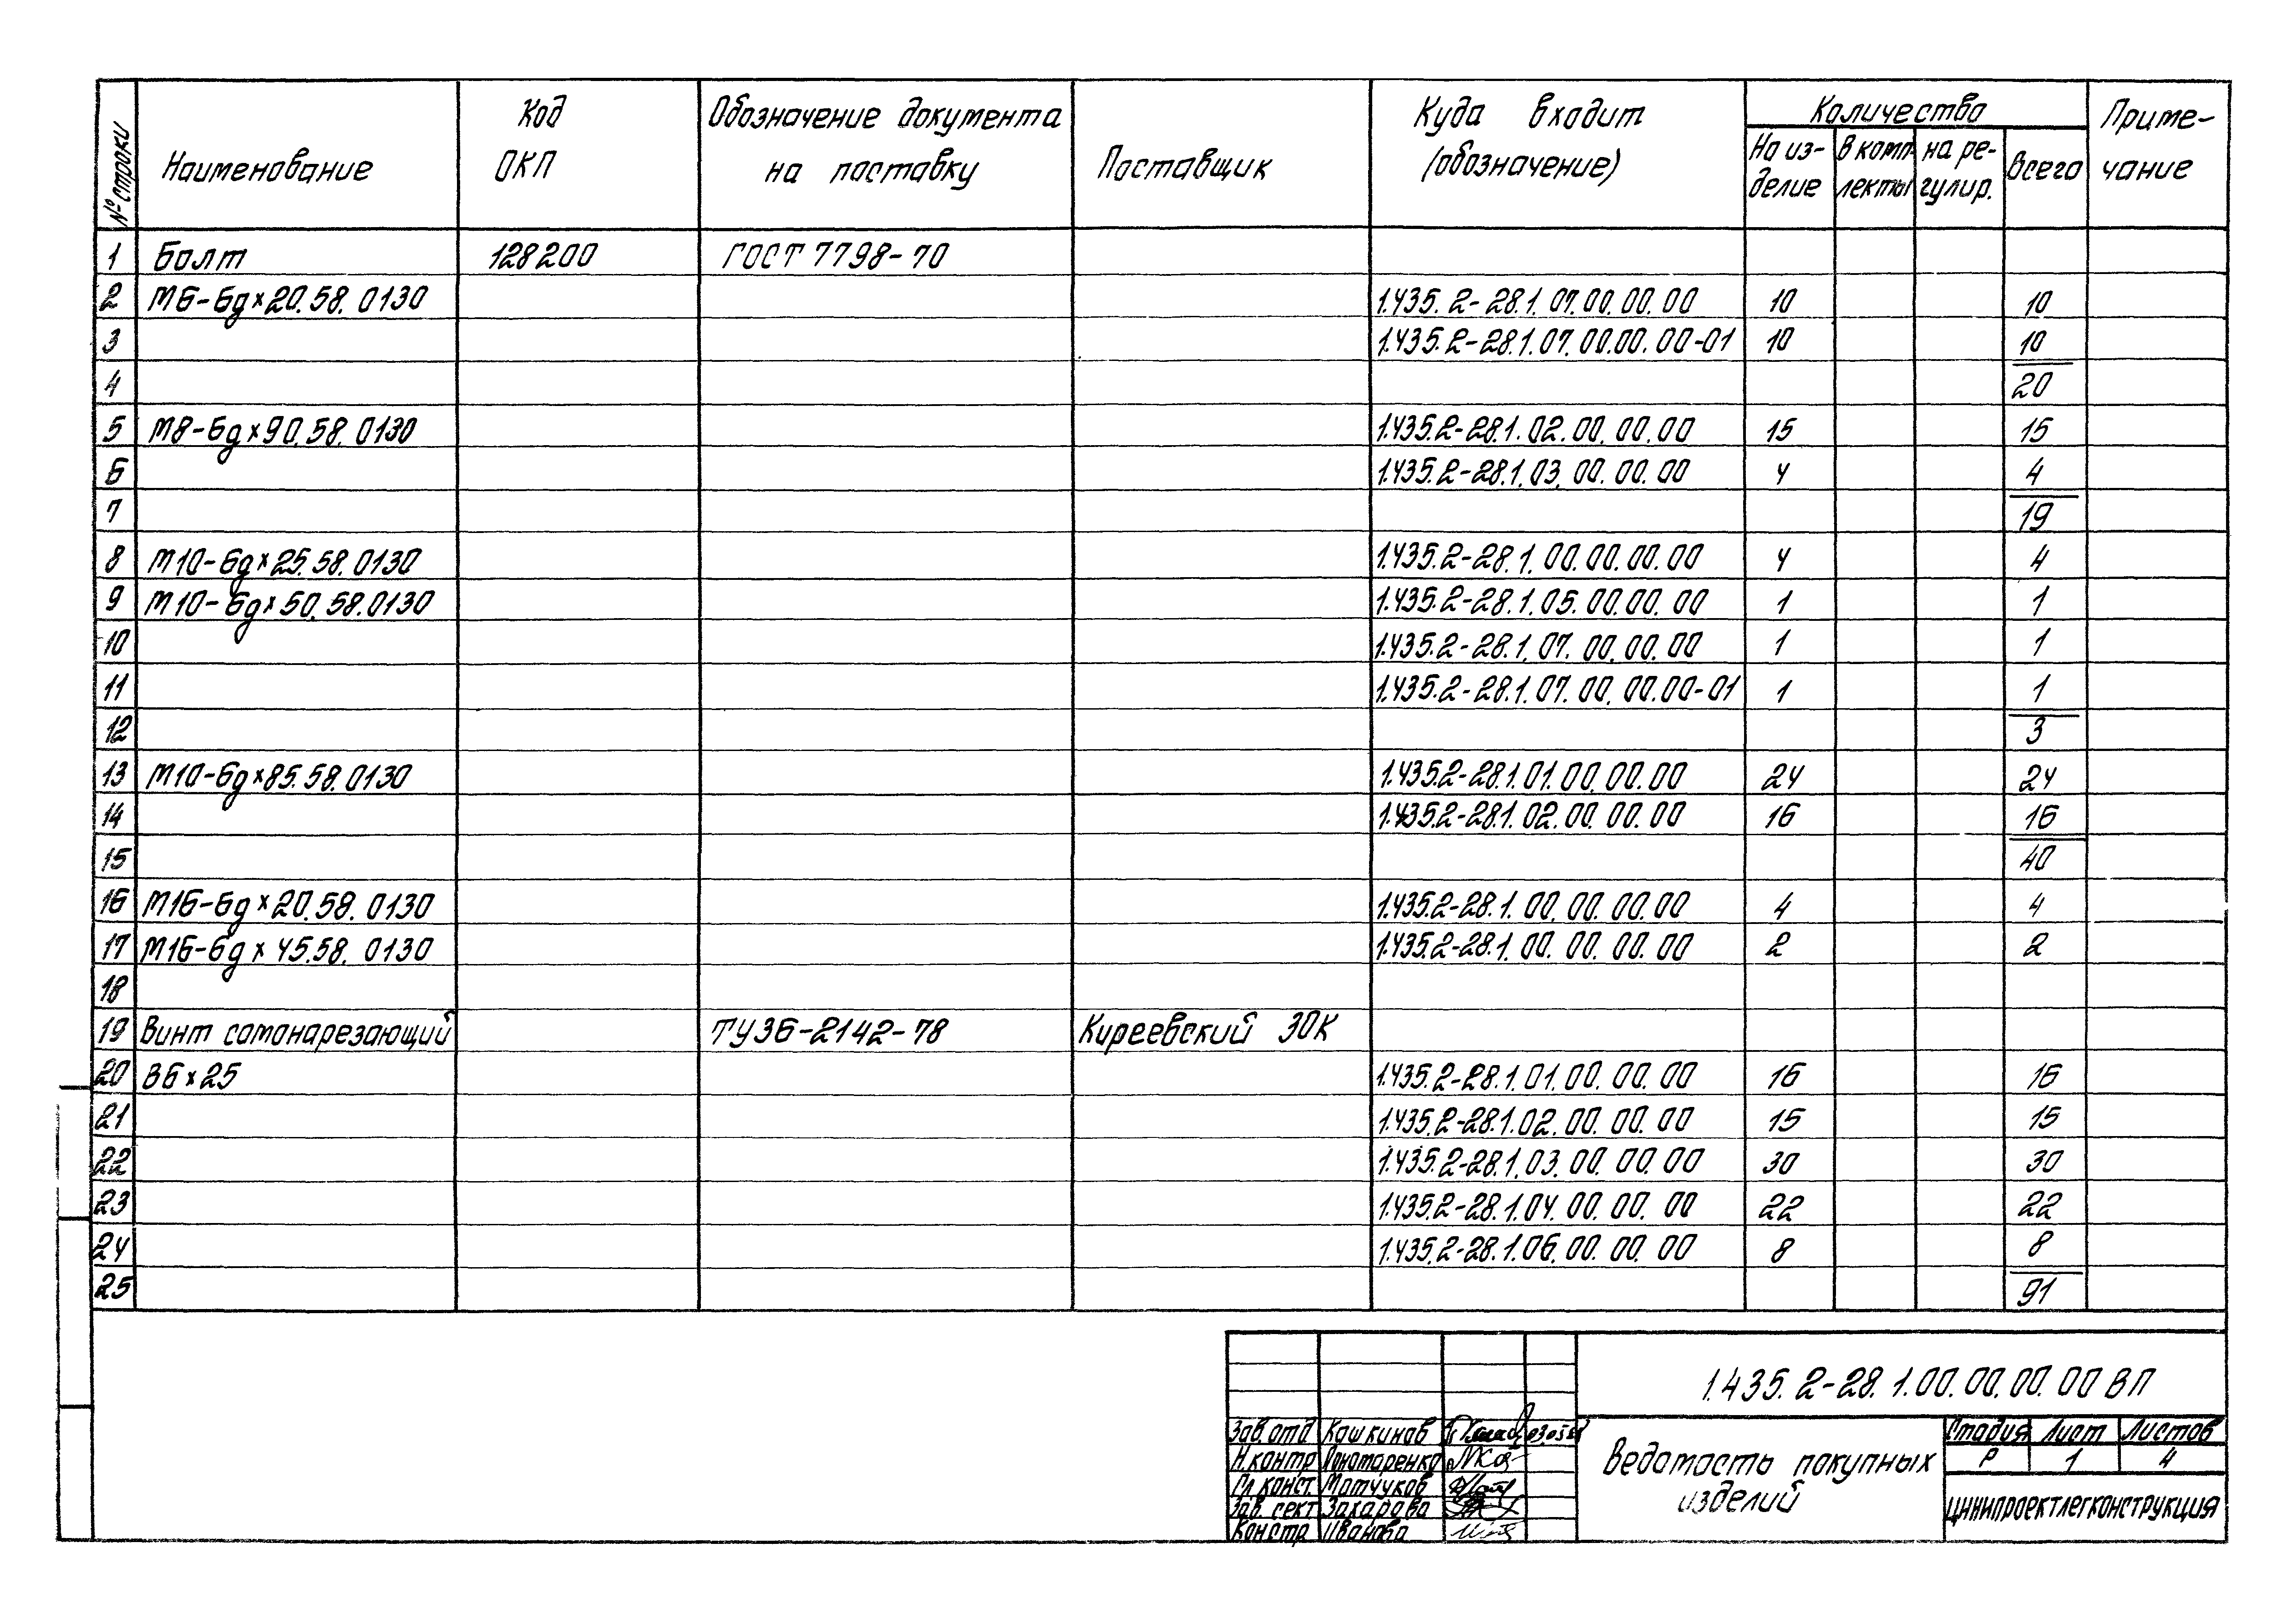 № строки
Наименование
Код
ОКП
Обозначение документа
на поставку
Поставщик
Куда входит
(обозначение)
Количество
На из-
делие
В комп
лекты
на ре-
гулир.
Всего
Приме-
чание
1 Болт 128200 ГОСТ 7798-70
2 М6-6g×20.58.0130 1.435.2-28.1.07.00.00.00 10 10
3 1.435.2-28.1.07.00.00.00-01 10 10
4 20
5 М8-6g×90.58.0130 1.435.2-28.1.02.00.00.00 15 15
6 1.435.2-28.1.03.00.00.00 4 4
7 19
8 М10-6g×25.58.0130 1.435.2-28.1.00.00.00.00 4 4
9 М10-6g×50.58.0130 1.435.2-28.1.05.00.00.00 1 1
10 1.435.2-28.1.07.00.00.00 1 1
11 1.435.2-28.1.07.00.00.00-01 1 1
12 3
13 М10-6g×85.58.0130 1.435.2-28.1.01.00.00.00 24 24
14 1.435.2-28.1.02.00.00.00 16 16
15 40
16 М16-6g×20.58.0130 1.435.2-28.1.00.00.00.00 4 4
17 М16-6g×45.58.0130 1.435.2-28.1.00.00.00.00 2 2
18
19 Винт самонарезающий ТУ36-2142-78 Киреевский ЗОК
20 В6×25 1.435.2-28.1.01.00.00.00 16 16
21 1.435.2-28.1.02.00.00.00 15 15
22 1.435.2-28.1.03.00.00.00 30 30
23 1.435.2-28.1.04.00.00.00 22 22
24 1.435.2-28.1.06.00.00.00 8 8
25 91
1.435.2-28.1.00.00.00.00 ВП
Зав.отд Кашкинов
Н.контр Пономаренко
Гл.конст. Матчуков
Зав.сект Захарова
Констр Иванова
Ведомость покупных
изделий
Стадия Лист Листов
Р 1 4
ЦНИИПРОЕКТЛЕГКОНСТРУКЦИЯ